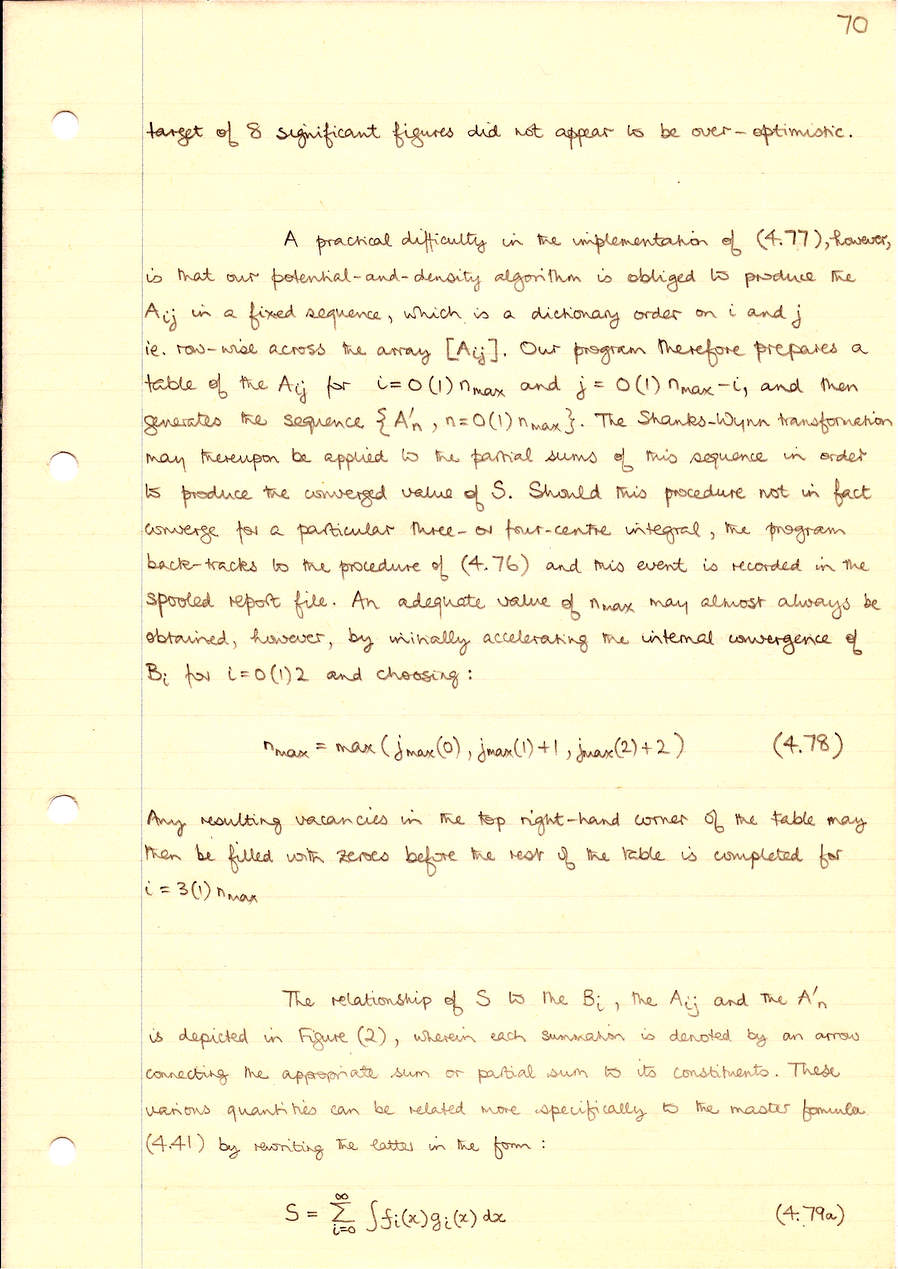 70
target of 8 significant figures did not appear to be over-optimistic.
A practical difficulty in the implementation of (4.77), however,
is that our potential-and-density algorithm is obliged to produce the
Aij in a fixed sequence, which is a dictionary order on i and j
ie. row-wise across the array [Aij]. Our program therefore prepares a
table of the Aij for i=0(1)nmax and j=0(1)nmax-i, and then
generates the sequence {A'n, n=0(1)nmax}. The Shanks-Wynn transformation
may thereupon be applied to the partial sums of this sequence in order
to produce the converged value of S. Should this procedure not in fact
converge for a particular three- or four-centre integral, the program
back-tracks to the procedure of (4.76) and this event is recorded in the
spooled report file. An adequate value of nmax may almost always be
obtained, however, by initially accelerating the internal convergence of
Bi for i=0(1)2 and choosing:
nmax = max(jmax(0), jmax(1)+1, jmax(2)+2) (4.78)
Any resulting vacancies in the top right-hand corner of the table may
then be filled with zeroes before the rest of the table is completed for
i=3(1)nmax
The relationship of S to the Bi, the Aij and the A'n
is depicted in Figure (2), wherein each summation is denoted by an arrow
connecting the appropriate sum or partial sum to its constituents. These
various quantities can be related more specifically to the master formula
(4.41) by rewriting the latter in the form:
S = ∑_{i=0}^{∞} ∫fi(x)gi(x)dx (4.79a)